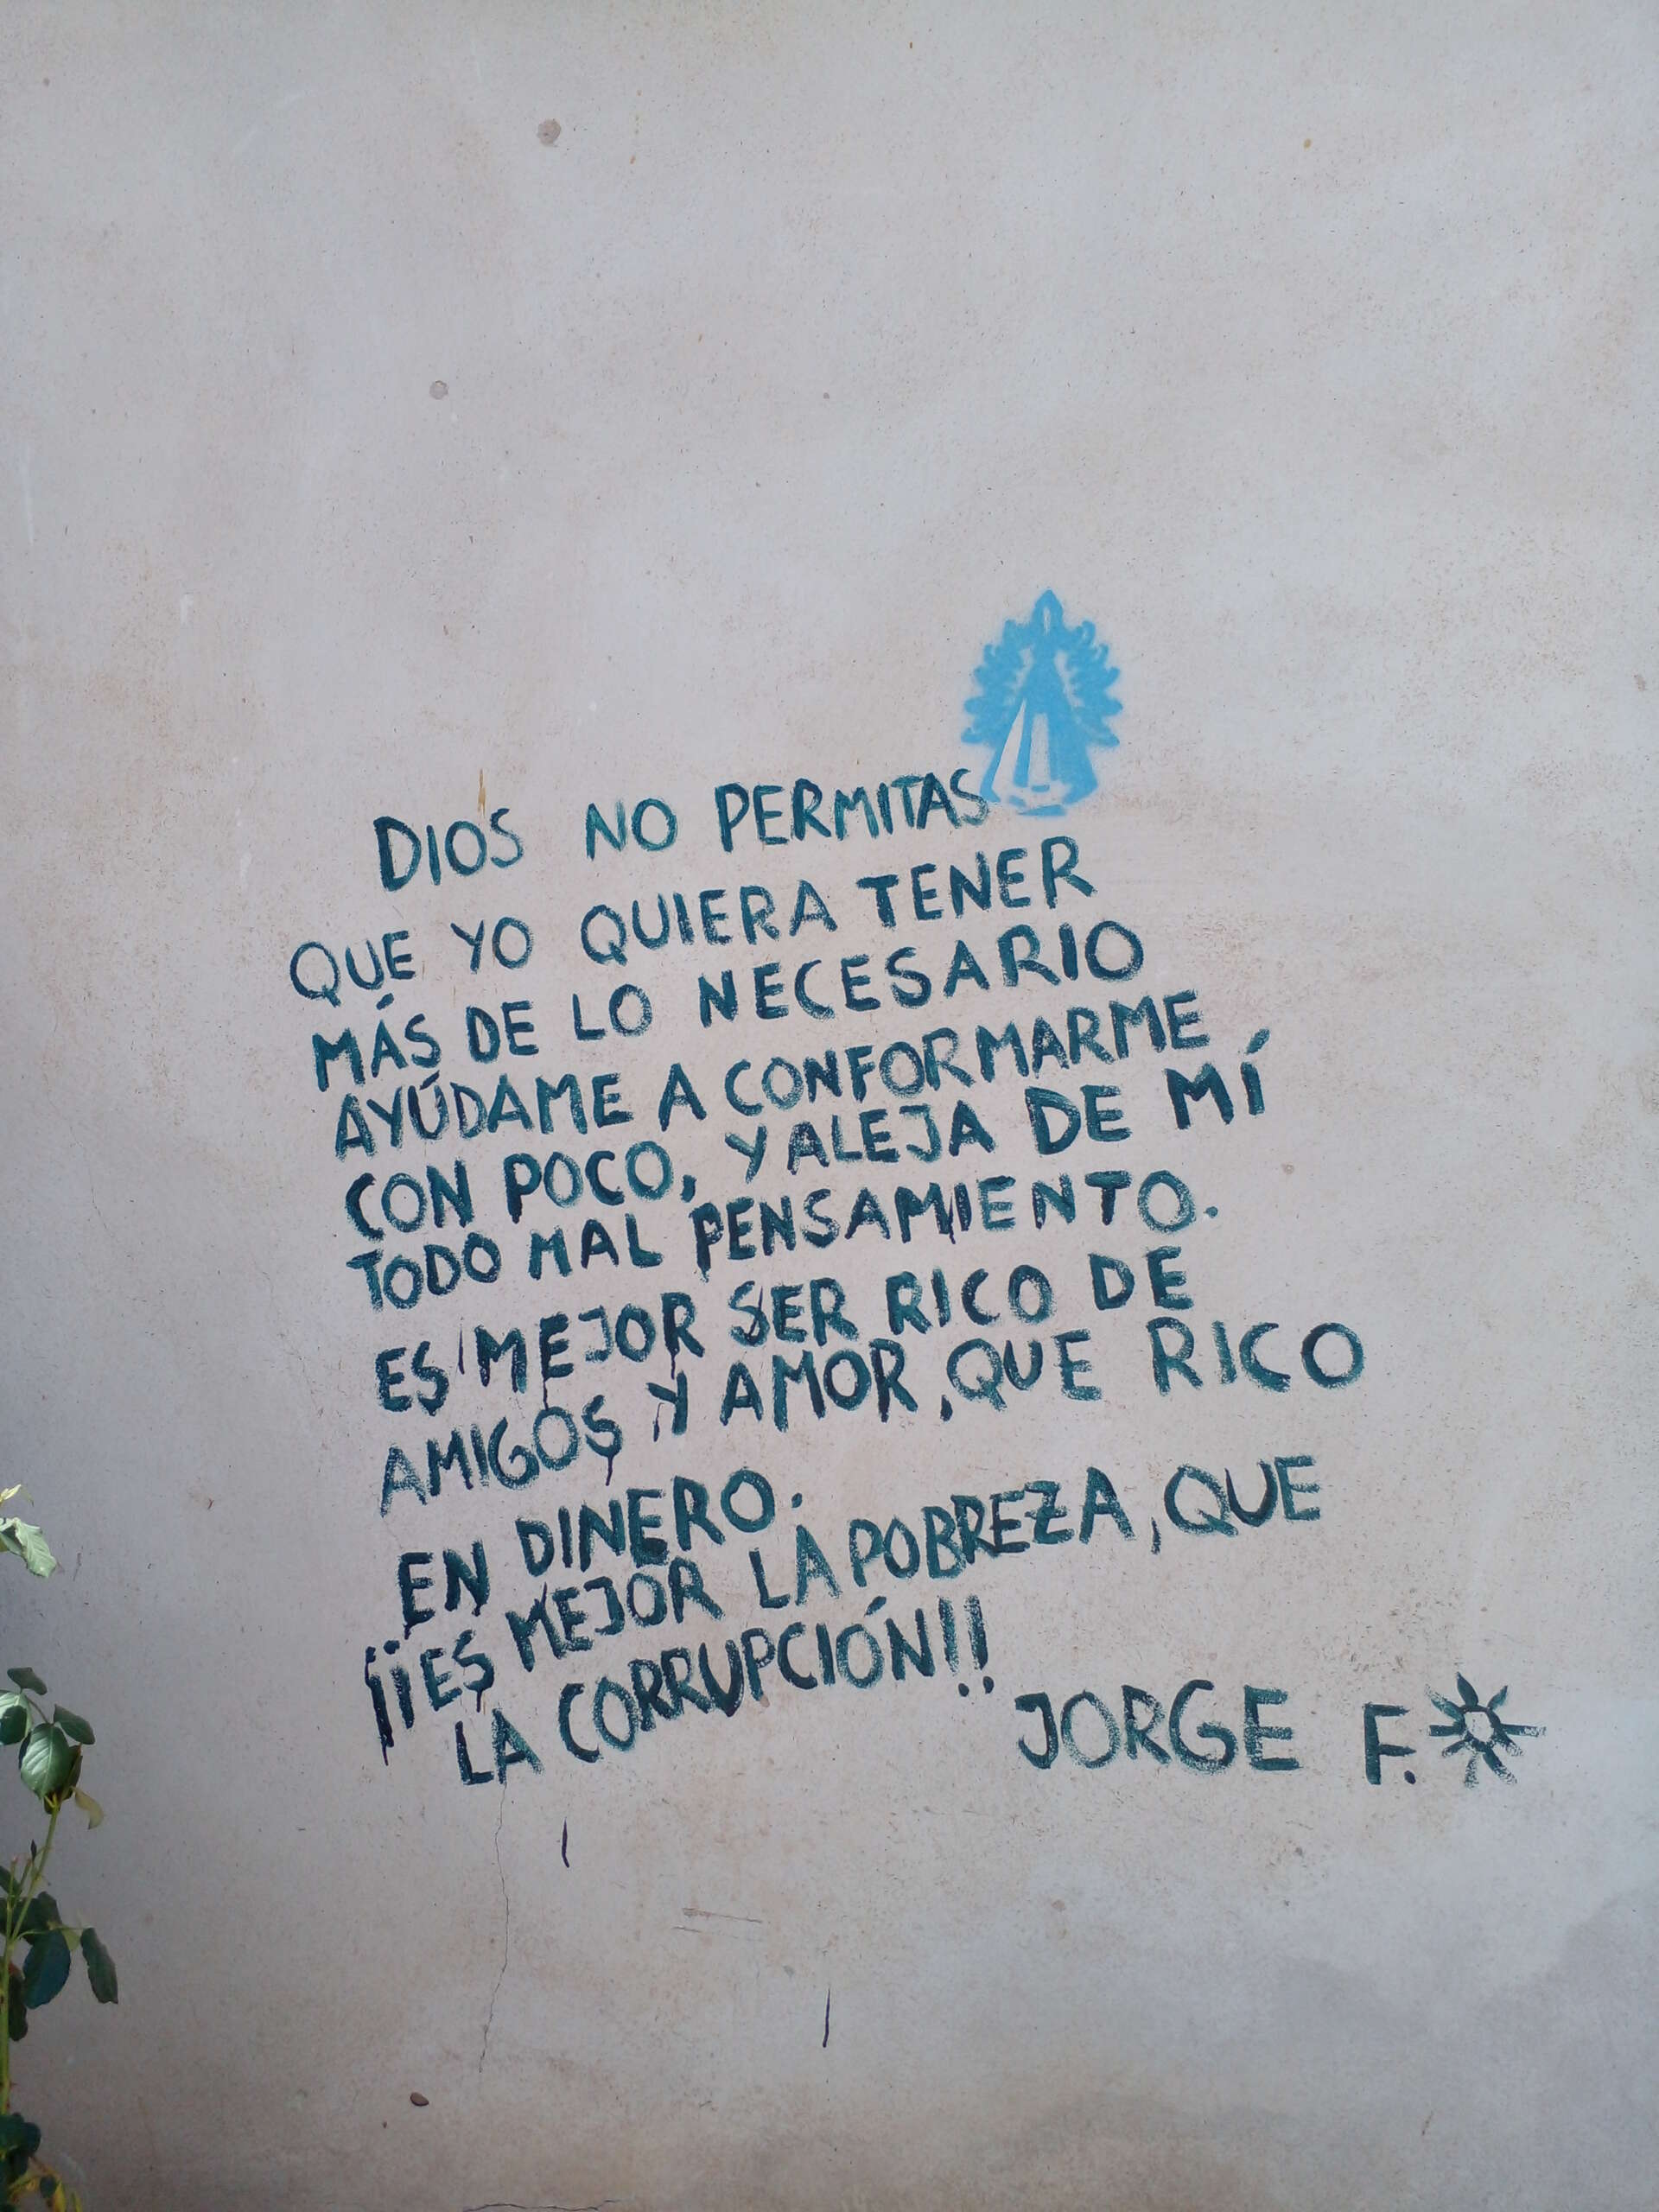 DIOS NO PERMITAS
QUE YO QUIERA TENER
MÁS DE LO NECESARIO
AYÚDAME A CONFORMARME
CON POCO, Y ALEJA DE MÍ
TODO MAL PENSAMIENTO.
ES MEJOR SER RICO DE
AMIGOS Y AMOR, QUE RICO
EN DINERO.
¡¡ES MEJOR LA POBREZA, QUE
LA CORRUPCIÓN!!
JORGE F.